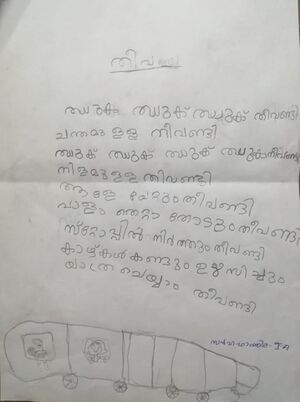 തീവണ്ടി
ഝുക് ഝുക് ഝുക് തീവണ്ടി
ചന്തമുള്ള തീവണ്ടി
ഝുക് ഝുക് ഝുക് ഝുക് തീവണ്ടി
നീളമുള്ള തീവണ്ടി
ആളെ കേറ്റും തീവണ്ടി
പാളം തെറ്റാ തോടും തീവണ്ടി
സ്റ്റോപ്പിൽ നിർത്തും തീവണ്ടി
കാഴ്കൾ കണ്ടും ഉല്ലസിച്ചും
യാത്ര ചെയ്യാം തീവണ്ടി